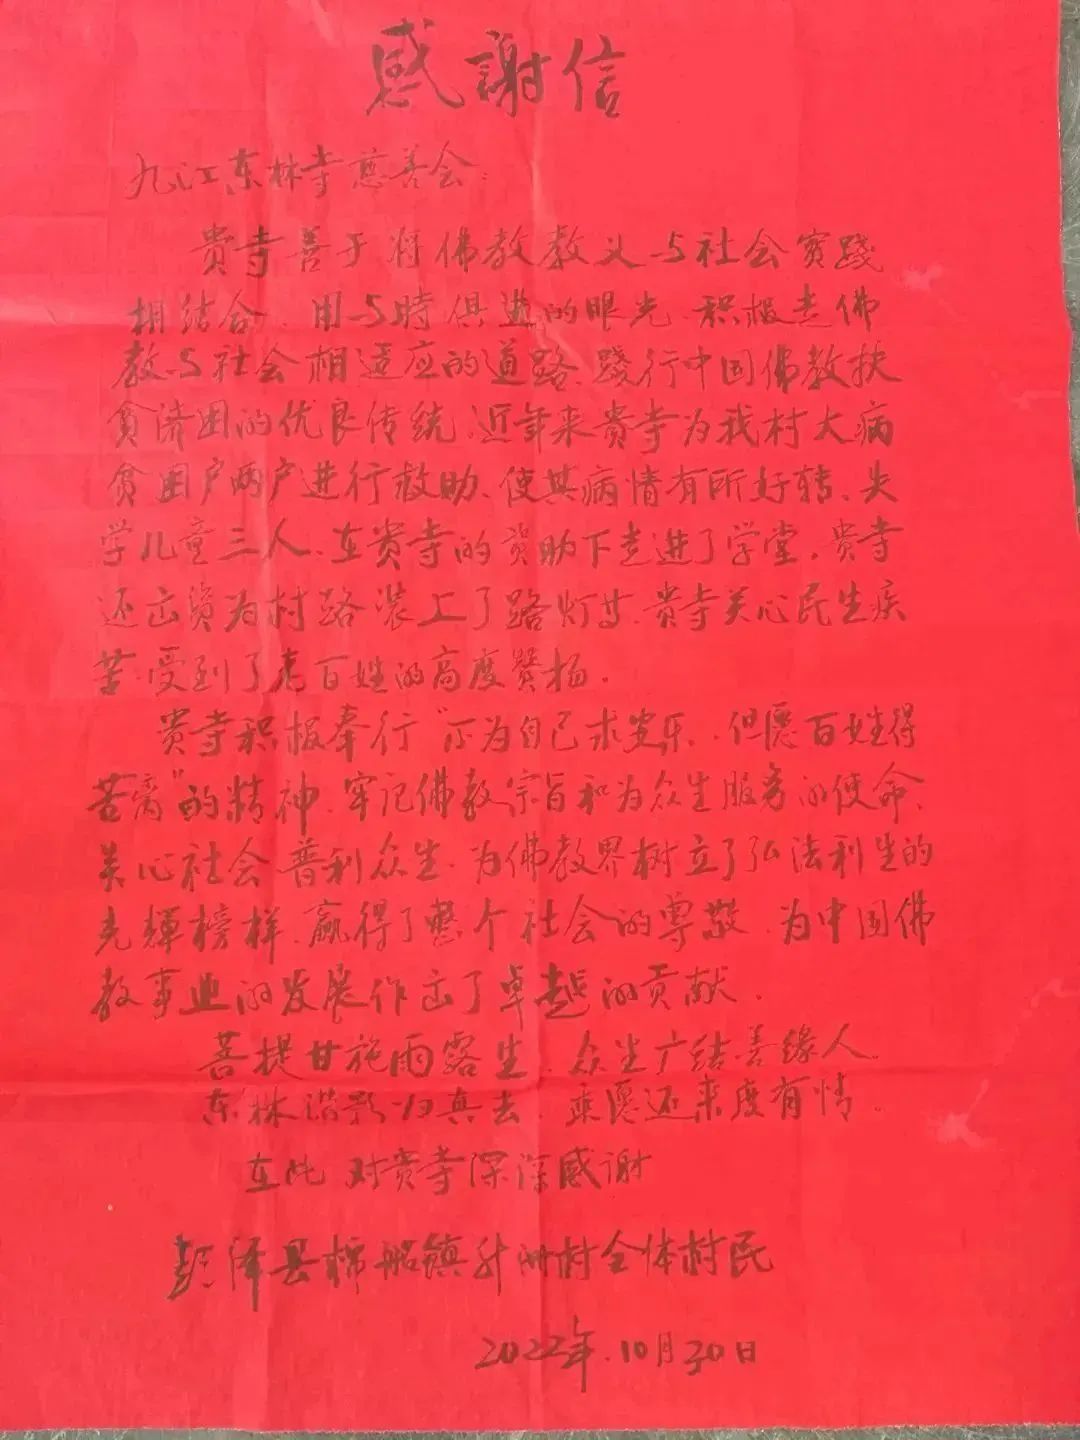 感謝信
九江东林寺慈善会：
贵寺善于将佛教教义与社会实践
相结合、用与時俱进的眼光、积极走佛
教与社会相适应的道路、践行中国佛教扶
贫济困的优良传统、近年来贵寺为我村大病
贫困户两户进行救助、使其病情有所好转、失
学儿童三人、在贵寺的资助下走进了学堂，贵寺
还出资为村路装上了路灯廿、贵寺关心民生疾
苦、受到了老百姓的高度赞扬.
贵寺积极奉行“不为自己求安乐、但愿百姓得
苦离”的精神、牢记佛教宗旨和为众生服务的使命、
关心社会 普利众生、为佛教界树立了弘法利生的
光輝榜样、赢得了整个社会的尊敬、为中国佛
教事业的发展作出了卓越的贡献.
菩提甘施雨露生、众生广结善缘人
东林 影归真去、乘愿还来度有情。
在此 对贵寺深深感谢
彭泽县棉船镇 洲村全体村民
2022年.10月30日